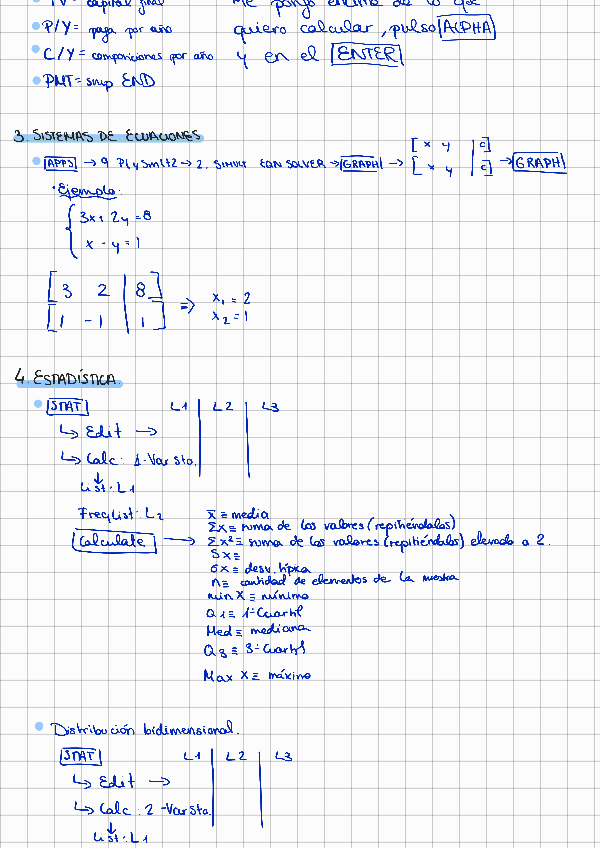 FV = capital final
me pongo encima de lo que
P/Y = pagos por año
quiero calcular, pulso ALPHA
C/Y = composiciones por año
y en el ENTER
PMT = smp END
3. SISTEMAS DE ECUACIONES
APPS → 9 PlySmlt2 → 2. SIMULT EQN SOLVER → GRAPH → [x y | c] → GRAPH
[x y | c]
· Ejemplo:
{ 3x + 2y = 8
x - y = 1
[3 2 | 8] ⇒ x₁ = 2
[1 -1 | 1] x₂ = 1
4. ESTADÍSTICA
STAT L1 | L2 | L3
↳ Edit →
↳ Calc: 1-Var Sta.
↓
List: L1
FreqList: L2
Calculate →
x̄ ≡ media
Σx ≡ suma de los valores (repitiéndolos)
Σx² ≡ suma de los valores (repitiéndolos) elevado a 2.
Sx ≡
σx ≡ desv. típica
n ≡ cantidad de elementos de la muestra
min X ≡ mínimo
Q1 ≡ 1º Cuartil
Med ≡ mediana
Q3 ≡ 3º Cuartil
Max X ≡ máximo
Distribución bidimensional.
STAT L1 | L2 | L3
↳ Edit →
↳ Calc: 2-Var Sta.
↓
List: L1